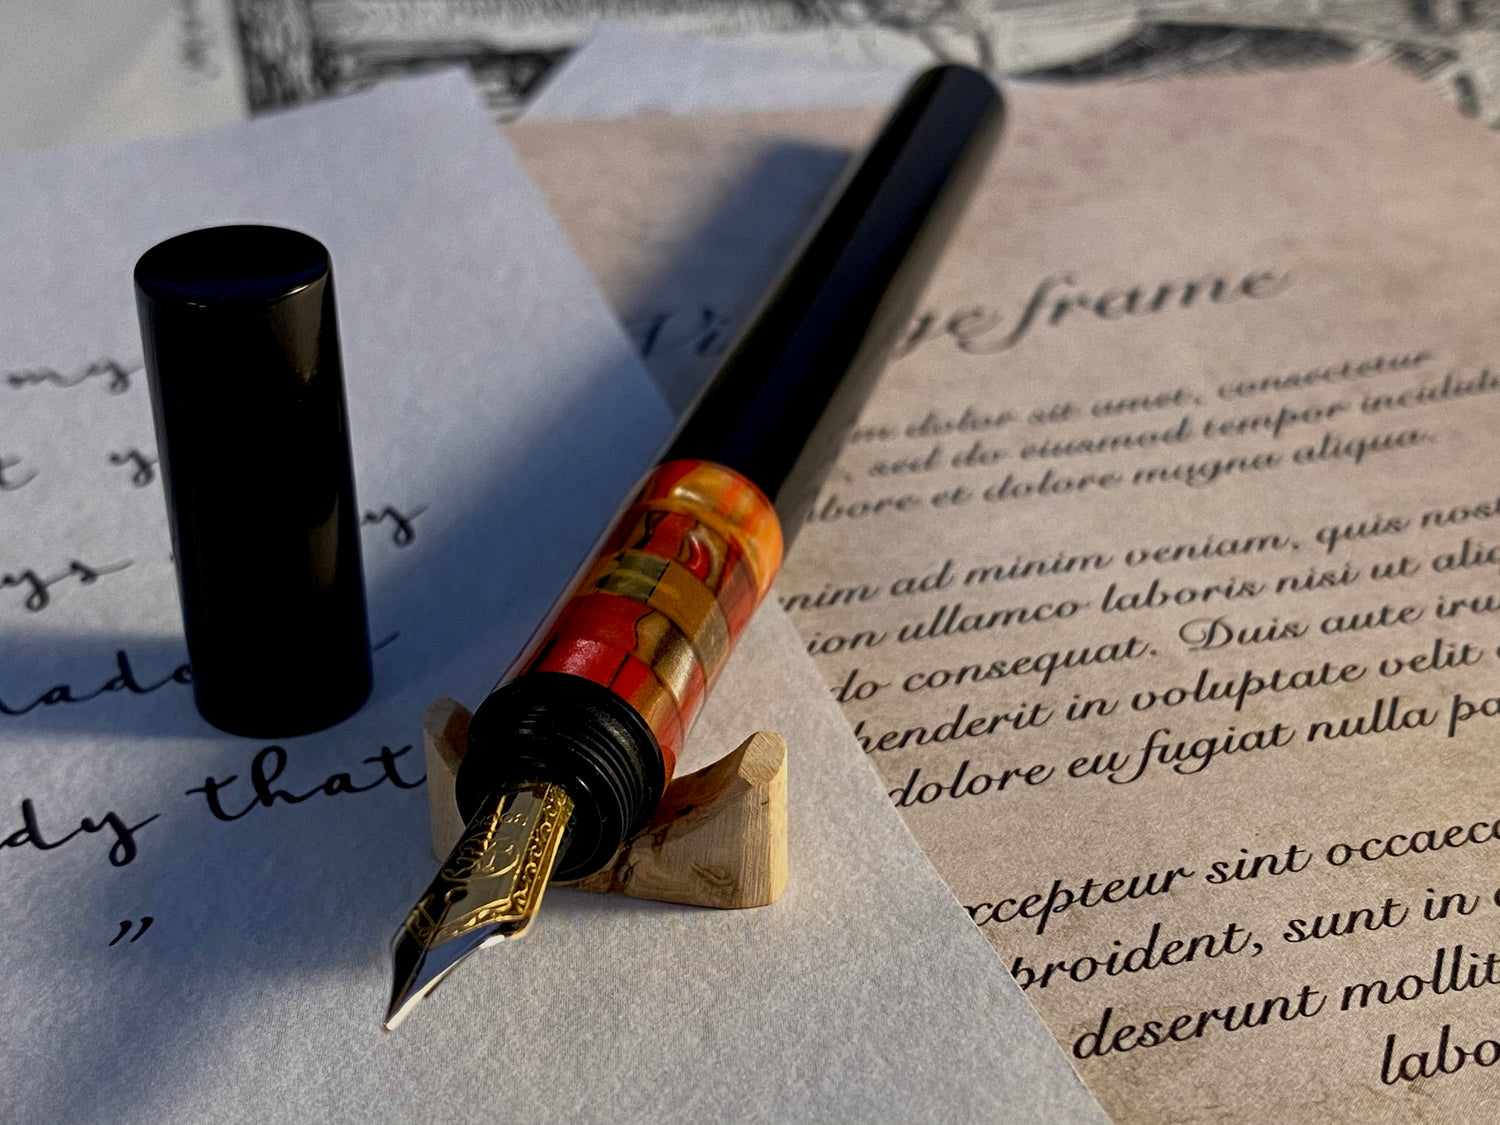 my
t y
ys y
lado
dy that
”
Vi ge frame
m dolor sit amet, consectetur
, sed do eiusmod tempor incididu
bore et dolore magna aliqua.
nim ad minim veniam, quis nost
ion ullamco laboris nisi ut aliq
do consequat. Duis aute iru
henderit in voluptate velit
dolore eu fugiat nulla pa
xcepteur sint occaeca
proident, sunt in
deserunt mollit
labo